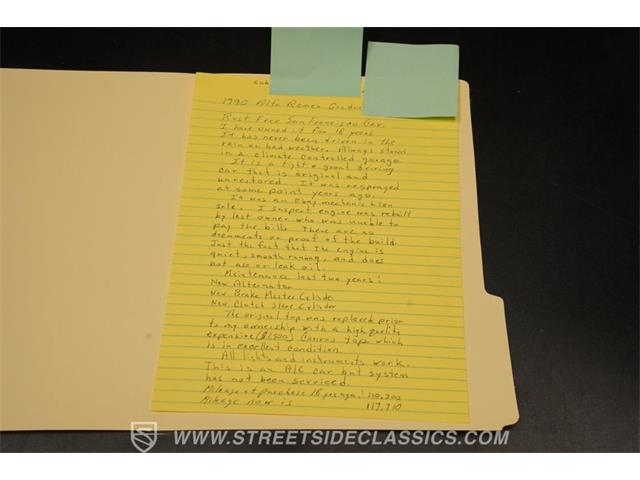 1990 Alfa Romeo
Rust Free San Francisco Car.
I have owned it for 16 years
It has never been driven in the
rain or bad weather. Always stored
in a climate controlled garage.
It is a tight & great driving
car that is original and
unrestored. It was resprayed
at some point years ago.
It was an Ebay mechanic's lien
sale. I suspect engine was rebuilt
by last owner who was unable to
pay the bill. There are no
documents or proof of the build.
Just the fact that the engine is
quiet, smooth running, and does
not use or leak oil.
Maintenance last two years:
New Alternator
New Brake Master Cylinder
New Clutch Slave Cylinder
The original top was replaced prior
to my ownership with a high quality
expensive ($1,500) Canvas top which
is in excellent condition.
All lights and instruments work.
This is an A/C car but system
has not been serviced.
Mileage at purchase 16 yrs ago: 110,300
Mileage now is 117,710
WWW.STREETSIDECLASSICS.COM